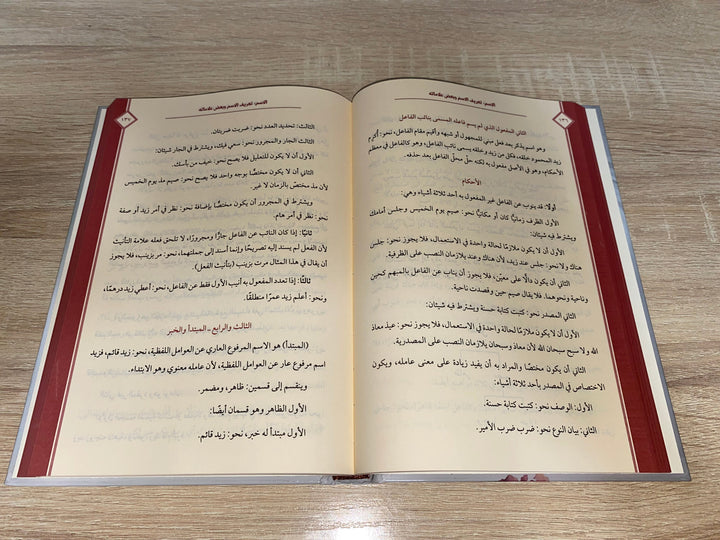 الاسم: تعريف الاسم وبعض علاماته
١٣٦
الثاني المفعول الذي لم يسم فاعله المسمى بنائب الفاعل
وهو اسم يذكر بعد فعل مبني للمجهول أو شبهه وأقيم مقام الفاعل، نحو: أكرم
زيد المحمود خلقه، فكل من زيد وخلقه يسمى نائب الفاعل، وهو كالفاعل في معظم
الأحكام، وهو في الأصل مفعول به لكنه حلّ محلّ الفاعل بعد حذفه.
الأحكام
أولًا: قد ينوب عن الفاعل غير المفعول به أحد ثلاثة أشياء وهي:
الأول الظرف زمانيًّا كان أو مكانيًّا نحو: صيم يوم الخميس وجلس أمامك
ويشترط فيه شيئان:
الأول أن لا يكون ملازمًا لحالة واحدة في الاستعمال، فلا يجوز نحو: جلس
هناك ولا نحو: جلس عند زيد، لأن هناك وعند يلازمان النصب على الظرفية.
الثاني أن يكون دالًّا على معيّن، فلا يجوز أن يناب عن الفاعل بالمبهم كحين
وناحية ونحوهما. فلا يقال صيم حين وقصدت ناحية.
الثاني المصدر نحو: كتبت كتابة حسنة ويشترط فيه شيئان:
الأول أن لا يكون ملازمًا لحالة واحدة في الاستعمال، فلا يجوز نحو: عيذ معاذ
الله ولا سبح سبحان الله لأن معاذ وسبحان يلازمان النصب على المصدرية.
الثاني أن يكون مختصًا والمراد به أن يفيد زيادة على معنى عامله، ويكون
الاختصاص في المصدر بأحد ثلاثة أشياء:
الأول: الوصف نحو: كتبت كتابة حسنة.
الثاني: بيان النوع نحو: ضرب ضرب الأمير.
الاسم: تعريف الاسم وبعض علاماته
١٣٧
الثالث: تحديد العدد نحو: ضربت ضربتان.
الثالث الجار والمجرور نحو: سعي فيك، ويشترط في الجار شيئان:
الأول أن لا يكون للتعليل فلا يصح نحو: خيف من بأسك.
الثاني أن لا يكون مختصًّا بوجه واحد فلا يصح نحو: صيم مذ يوم الخميس
لأن مذ مختص بالزمان لا غير.
ويشترط في المجرور أن يكون مختصًّا بإضافة نحو: نظر في أمر زيد أو صفة
نحو: نظر في أمر هام.
ثانيًا: إذا كان النائب عن الفاعل جارًّا ومجرورًا، لا تلحق فعله علامة التأنيث
لأن الفعل لم يسند إليه تصريحًا وإنما أسند إلى جملتهما، نحو: مر بزينب، فلا يجوز
أن يقال في هذا المثال مرت بزينب (بتأنيث الفعل).
ثالثًا: إذا تعدد المفعول به أنيب الأول فقط عن الفاعل، نحو: أعطي زيد درهمًا،
ونحو: أعلم زيد عمرًا منطلقًا.
الثالث والرابع - المبتدأ والخبر
(المبتدأ) هو الاسم المرفوع العاري عن العوامل اللفظية، نحو: زيد قائم، فزيد
اسم مرفوع عار عن العوامل اللفظية، لأن عامله معنوي وهو الابتداء.
وينقسم إلى قسمين: ظاهر، ومضمر.
الأول الظاهر وهو قسمان أيضًا:
الأول مبتدأ له خبر، نحو: زيد قائم.